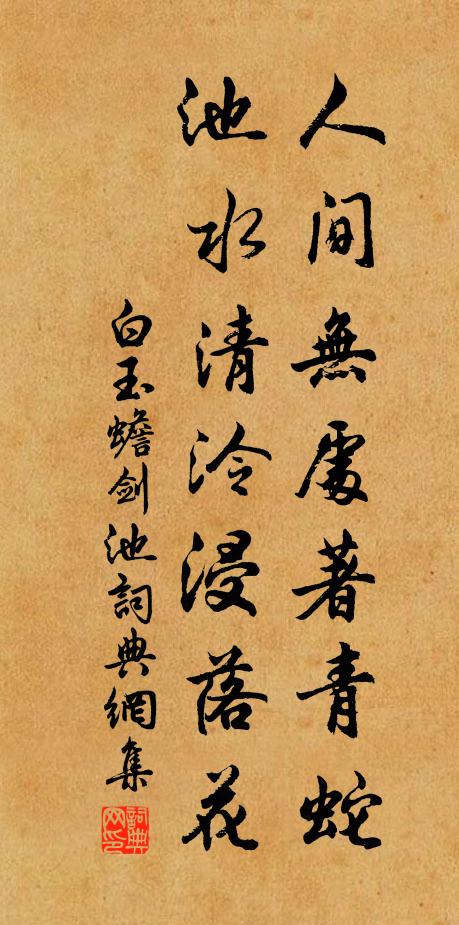 人間無處著青蛇
池水清泠浸落花
白玉蟾劍池詞典網集
詞典网印